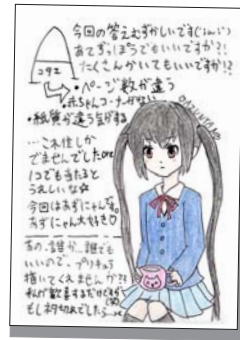 今回の答えむずかしいです(;ω;)
あてずっぽうでもいいですか?!
たくさんかいてもいいですか!?
コタエ
・ページ数が違う
・赤ちゃんコーナーがない
・紙質が違う気がする
…これ位しか
でませんでしたorz
1つでも当たると
うれしいな☆
今回はあずにゃんです。
あずにゃん大好き♡
あの、誰か…誰でも
いいので、プリキュア
描いてくれませんか?!
私が歓喜するだけですが
もしネタ切れでしたら…